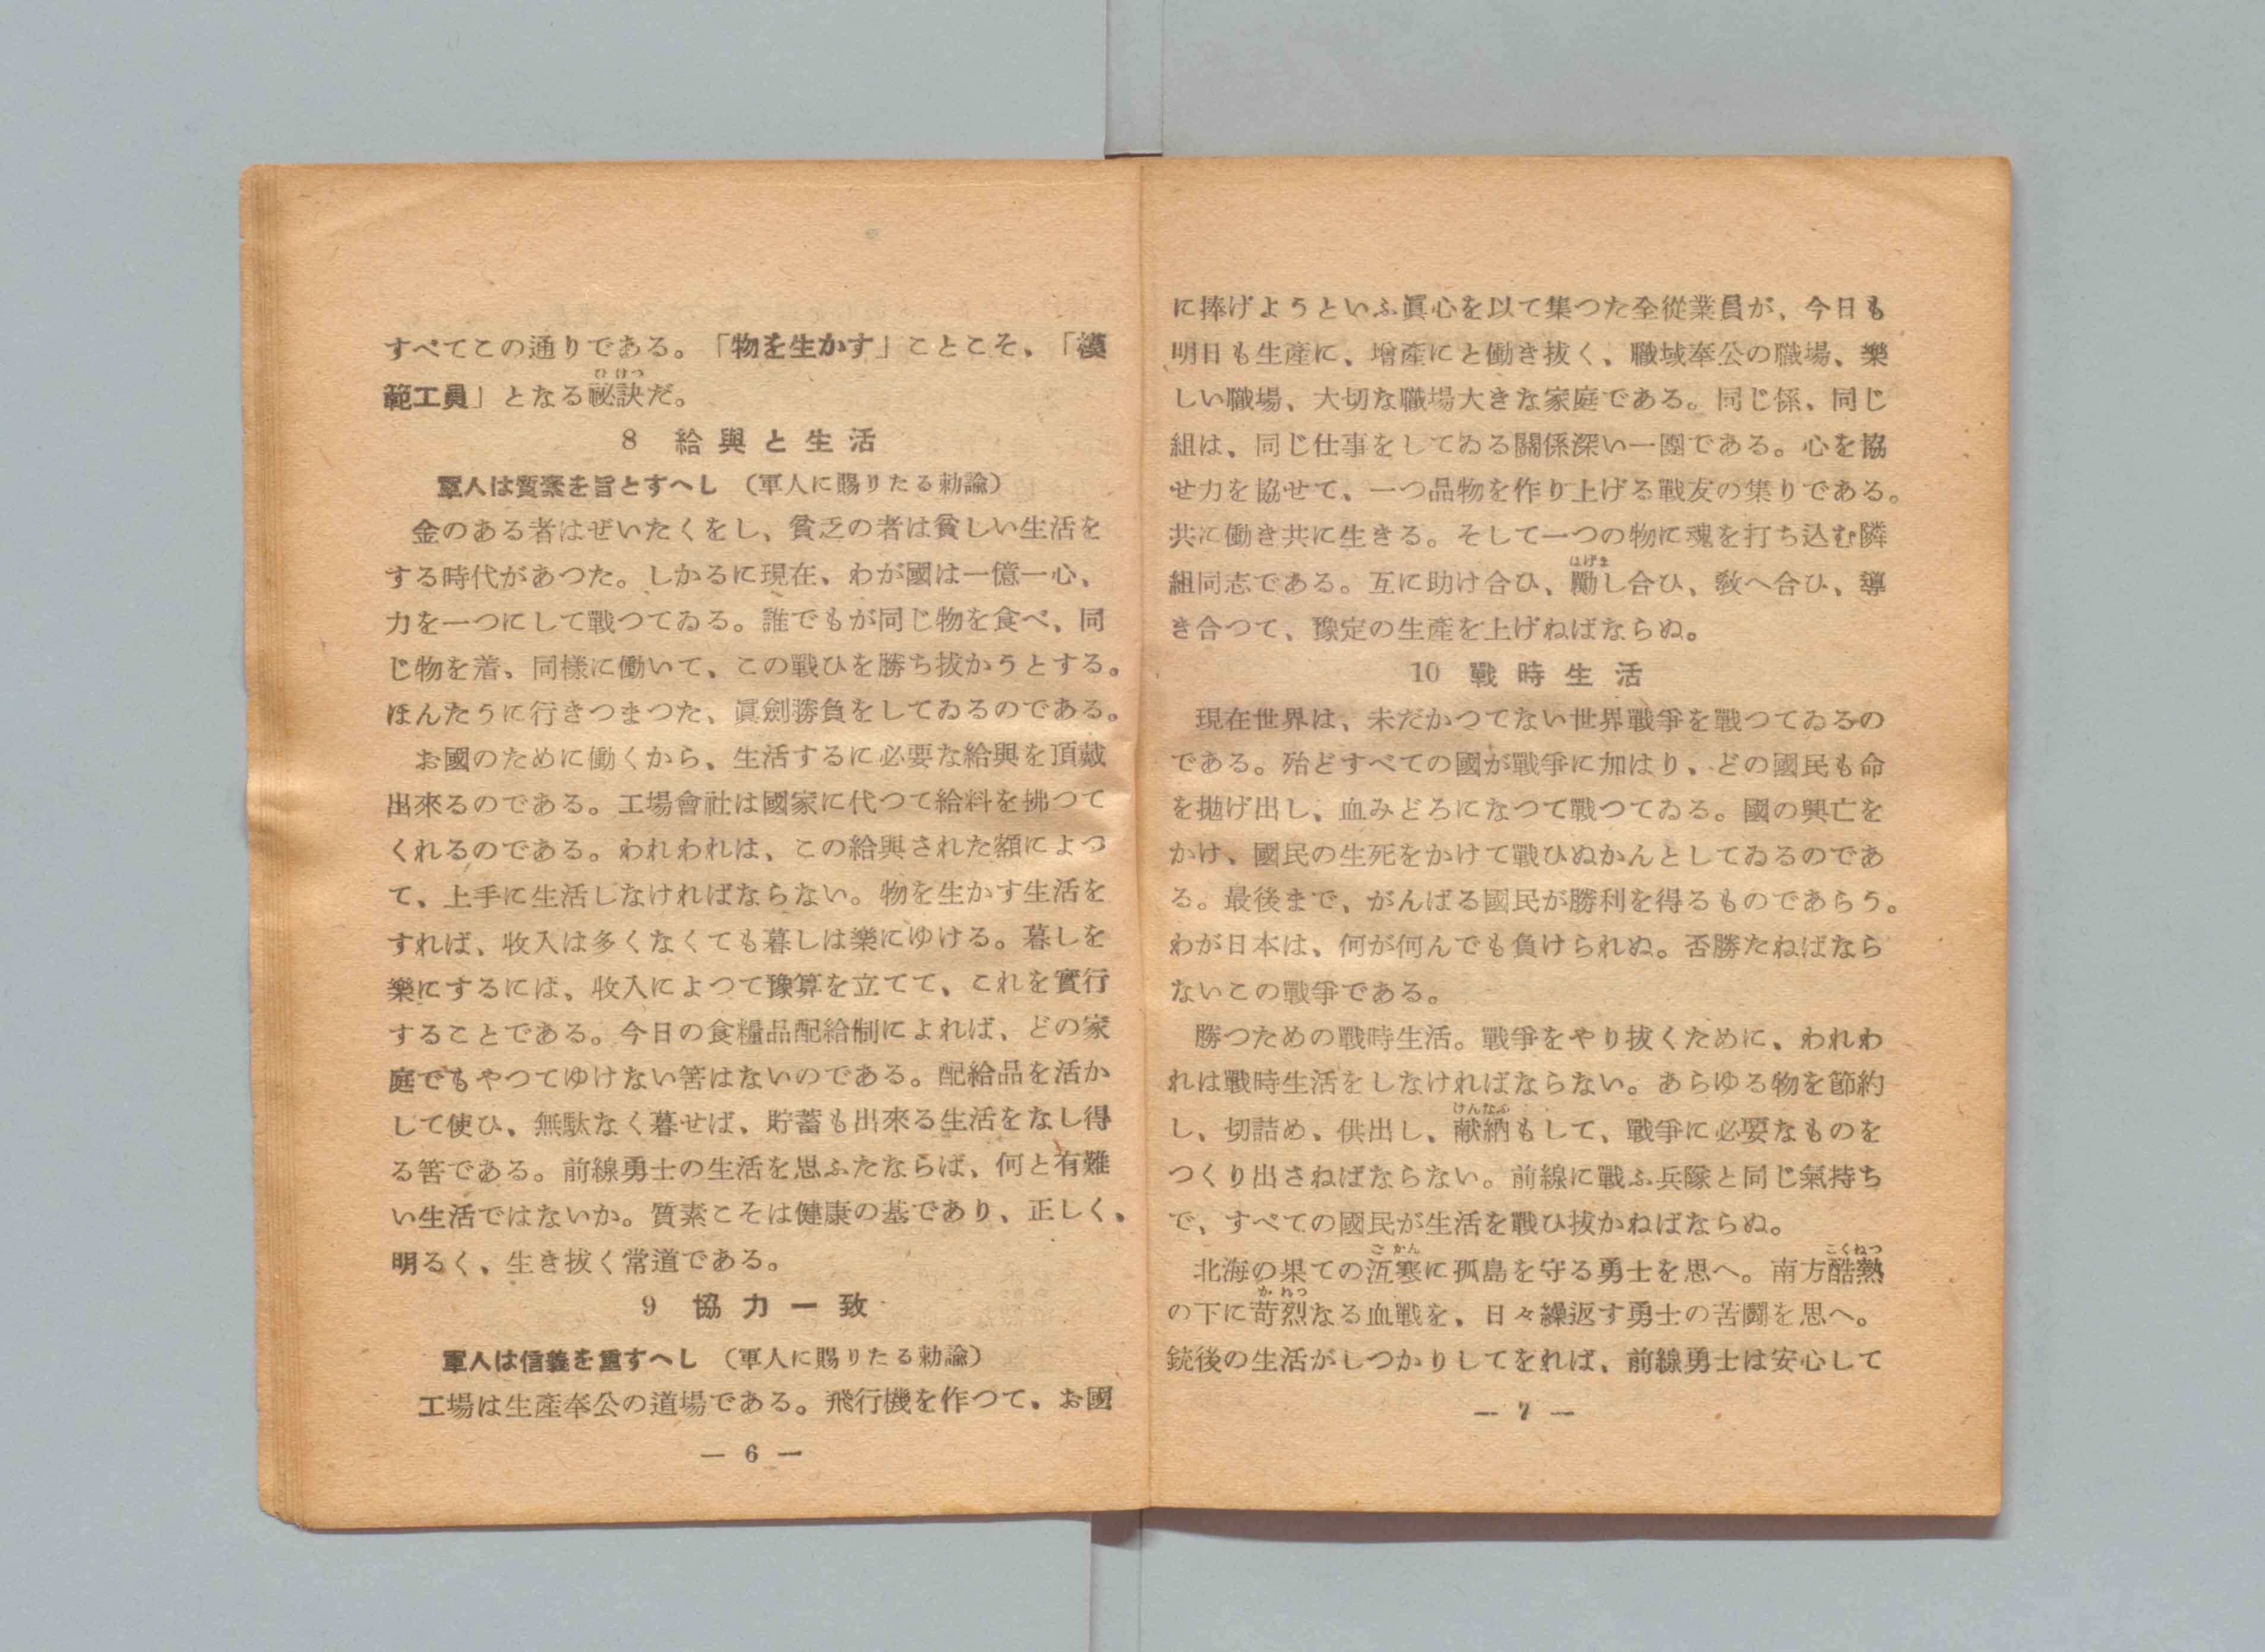 すべてこの通りである。「物を生かす」ことこそ、「模
範工員」となる祕訣だ。
ひけつ
8 給與と生活
軍人は質素を旨とすへし（軍人に賜りたる勅諭）
金のある者はぜいたくをし、貧乏の者は貧しい生活を
する時代があつた。しかるに現在、わが國は一億一心、
力を一つにして戰つてゐる。誰でもが同じ物を食べ、同
じ物を着、同樣に働いて、この戰ひを勝ち拔かうとする。
ほんたうに行きつまつた、眞劍勝負をしてゐるのである。
お國のために働くから、生活するに必要な給與を頂戴
出來るのである。工場會社は國家に代つて給料を拂つて
くれるのである。われわれは、この給與された額によつ
て、上手に生活しなければならない。物を生かす生活を
すれば、收入は多くなくても暮しは樂にゆける。暮しを
樂にするには、收入によつて豫算を立てて、これを實行
することである。今日の食糧品配給制によれば、どの家
庭でもやつてゆけない筈はないのである。配給品を活か
して使ひ、無駄なく暮せば、貯蓄も出來る生活をなし得
る筈である。前線勇士の生活を思ふたならば、何と有難
い生活ではないか。質素こそは健康の基であり、正しく、
明るく、生き拔く常道である。
9 協力一致
軍人は信義を重すへし（軍人に賜りたる勅諭）
工場は生産奉公の道場である。飛行機を作つて、お國
— 6 —
に捧げようといふ眞心を以て集つた全從業員が、今日も
明日も生産に、增産にと働き拔く、職域奉公の職場、樂
しい職場、大切な職場大きな家庭である。同じ係、同じ
組は、同じ仕事をしてゐる關係深い一團である。心を協
せ力を協せて、一つ品物を作り上げる戰友の集りである。
共に働き共に生きる。そして一つの物に魂を打ち込む隣
組同志である。互に助け合ひ、勵し合ひ、敎へ合ひ、導
はげま
き合つて、豫定の生産を上げねばならぬ。
10 戰時生活
現在世界は、未だかつてない世界戰爭を戰つてゐるの
である。殆どすべての國が戰爭に加はり、どの國民も命
を拋げ出し、血みどろになつて戰つてゐる。國の興亡を
かけ、國民の生死をかけて戰ひぬかんとしてゐるのであ
る。最後まで、がんばる國民が勝利を得るものであらう。
わが日本は、何が何んでも負けられぬ。否勝たねばなら
ないこの戰爭である。
勝つための戰時生活。戰爭をやり拔くために、われわ
れは戰時生活をしなければならない。あらゆる物を節約
し、切詰め、供出し、献納もして、戰爭に必要なものを
けんなふ
つくり出さねばならない。前線に戰ふ兵隊と同じ氣持ち
で、すべての國民が生活を戰ひ拔かねばならぬ。
北海の果ての冱寒に孤島を守る勇士を思へ。南方酷熱
ごかん こくねつ
の下に苛烈なる血戰を、日々繰返す勇士の苦鬪を思へ。
かれつ
銃後の生活がしつかりしてをれば、前線勇士は安心して
— 7 —